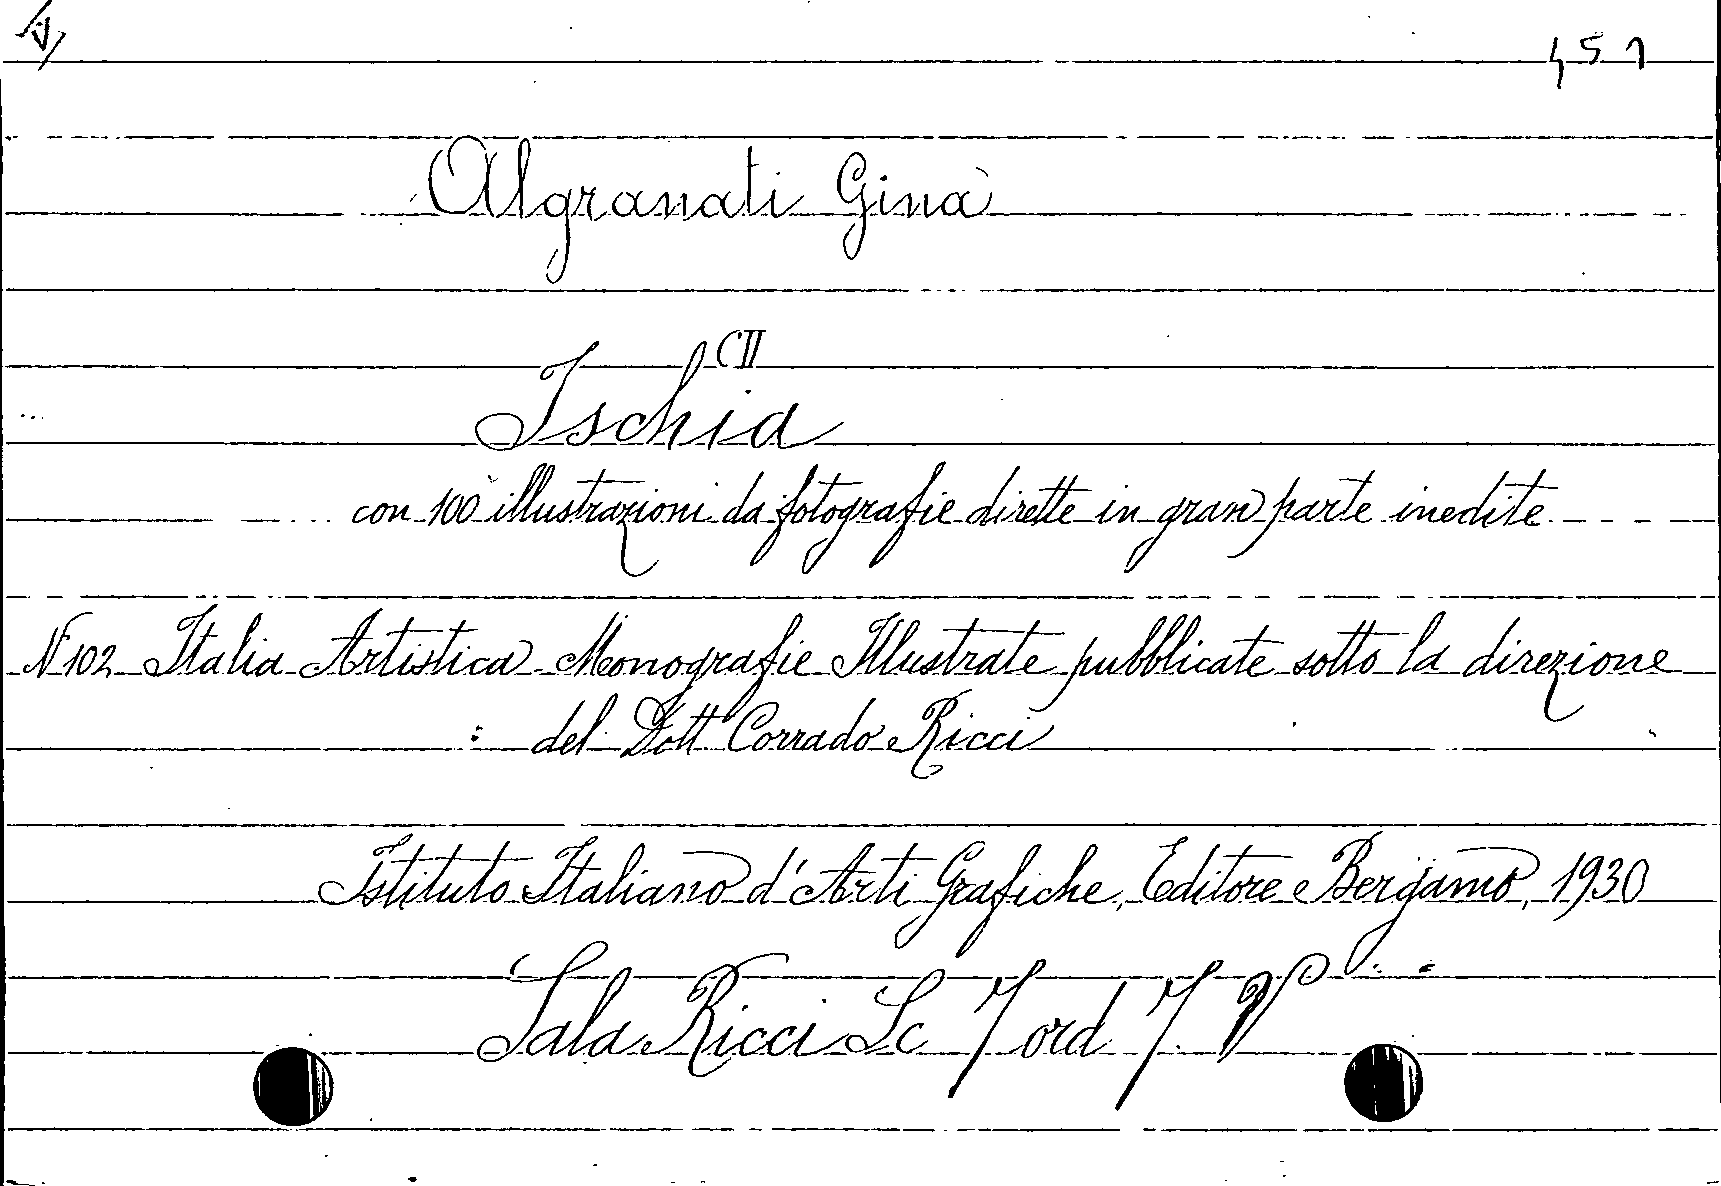 451
Algranati Gina
CII
Ischia
con 100 illustrazioni da fotografie dirette in gran parte inedite
N 102 Italia Artistica Monografie Illustrate pubblicate sotto la direzione
del Dott Corrado Ricci
Istituto Italiano d'Arti Grafiche, Editore Bergamo, 1930
Sala Ricci Sc 7 ord 7. P